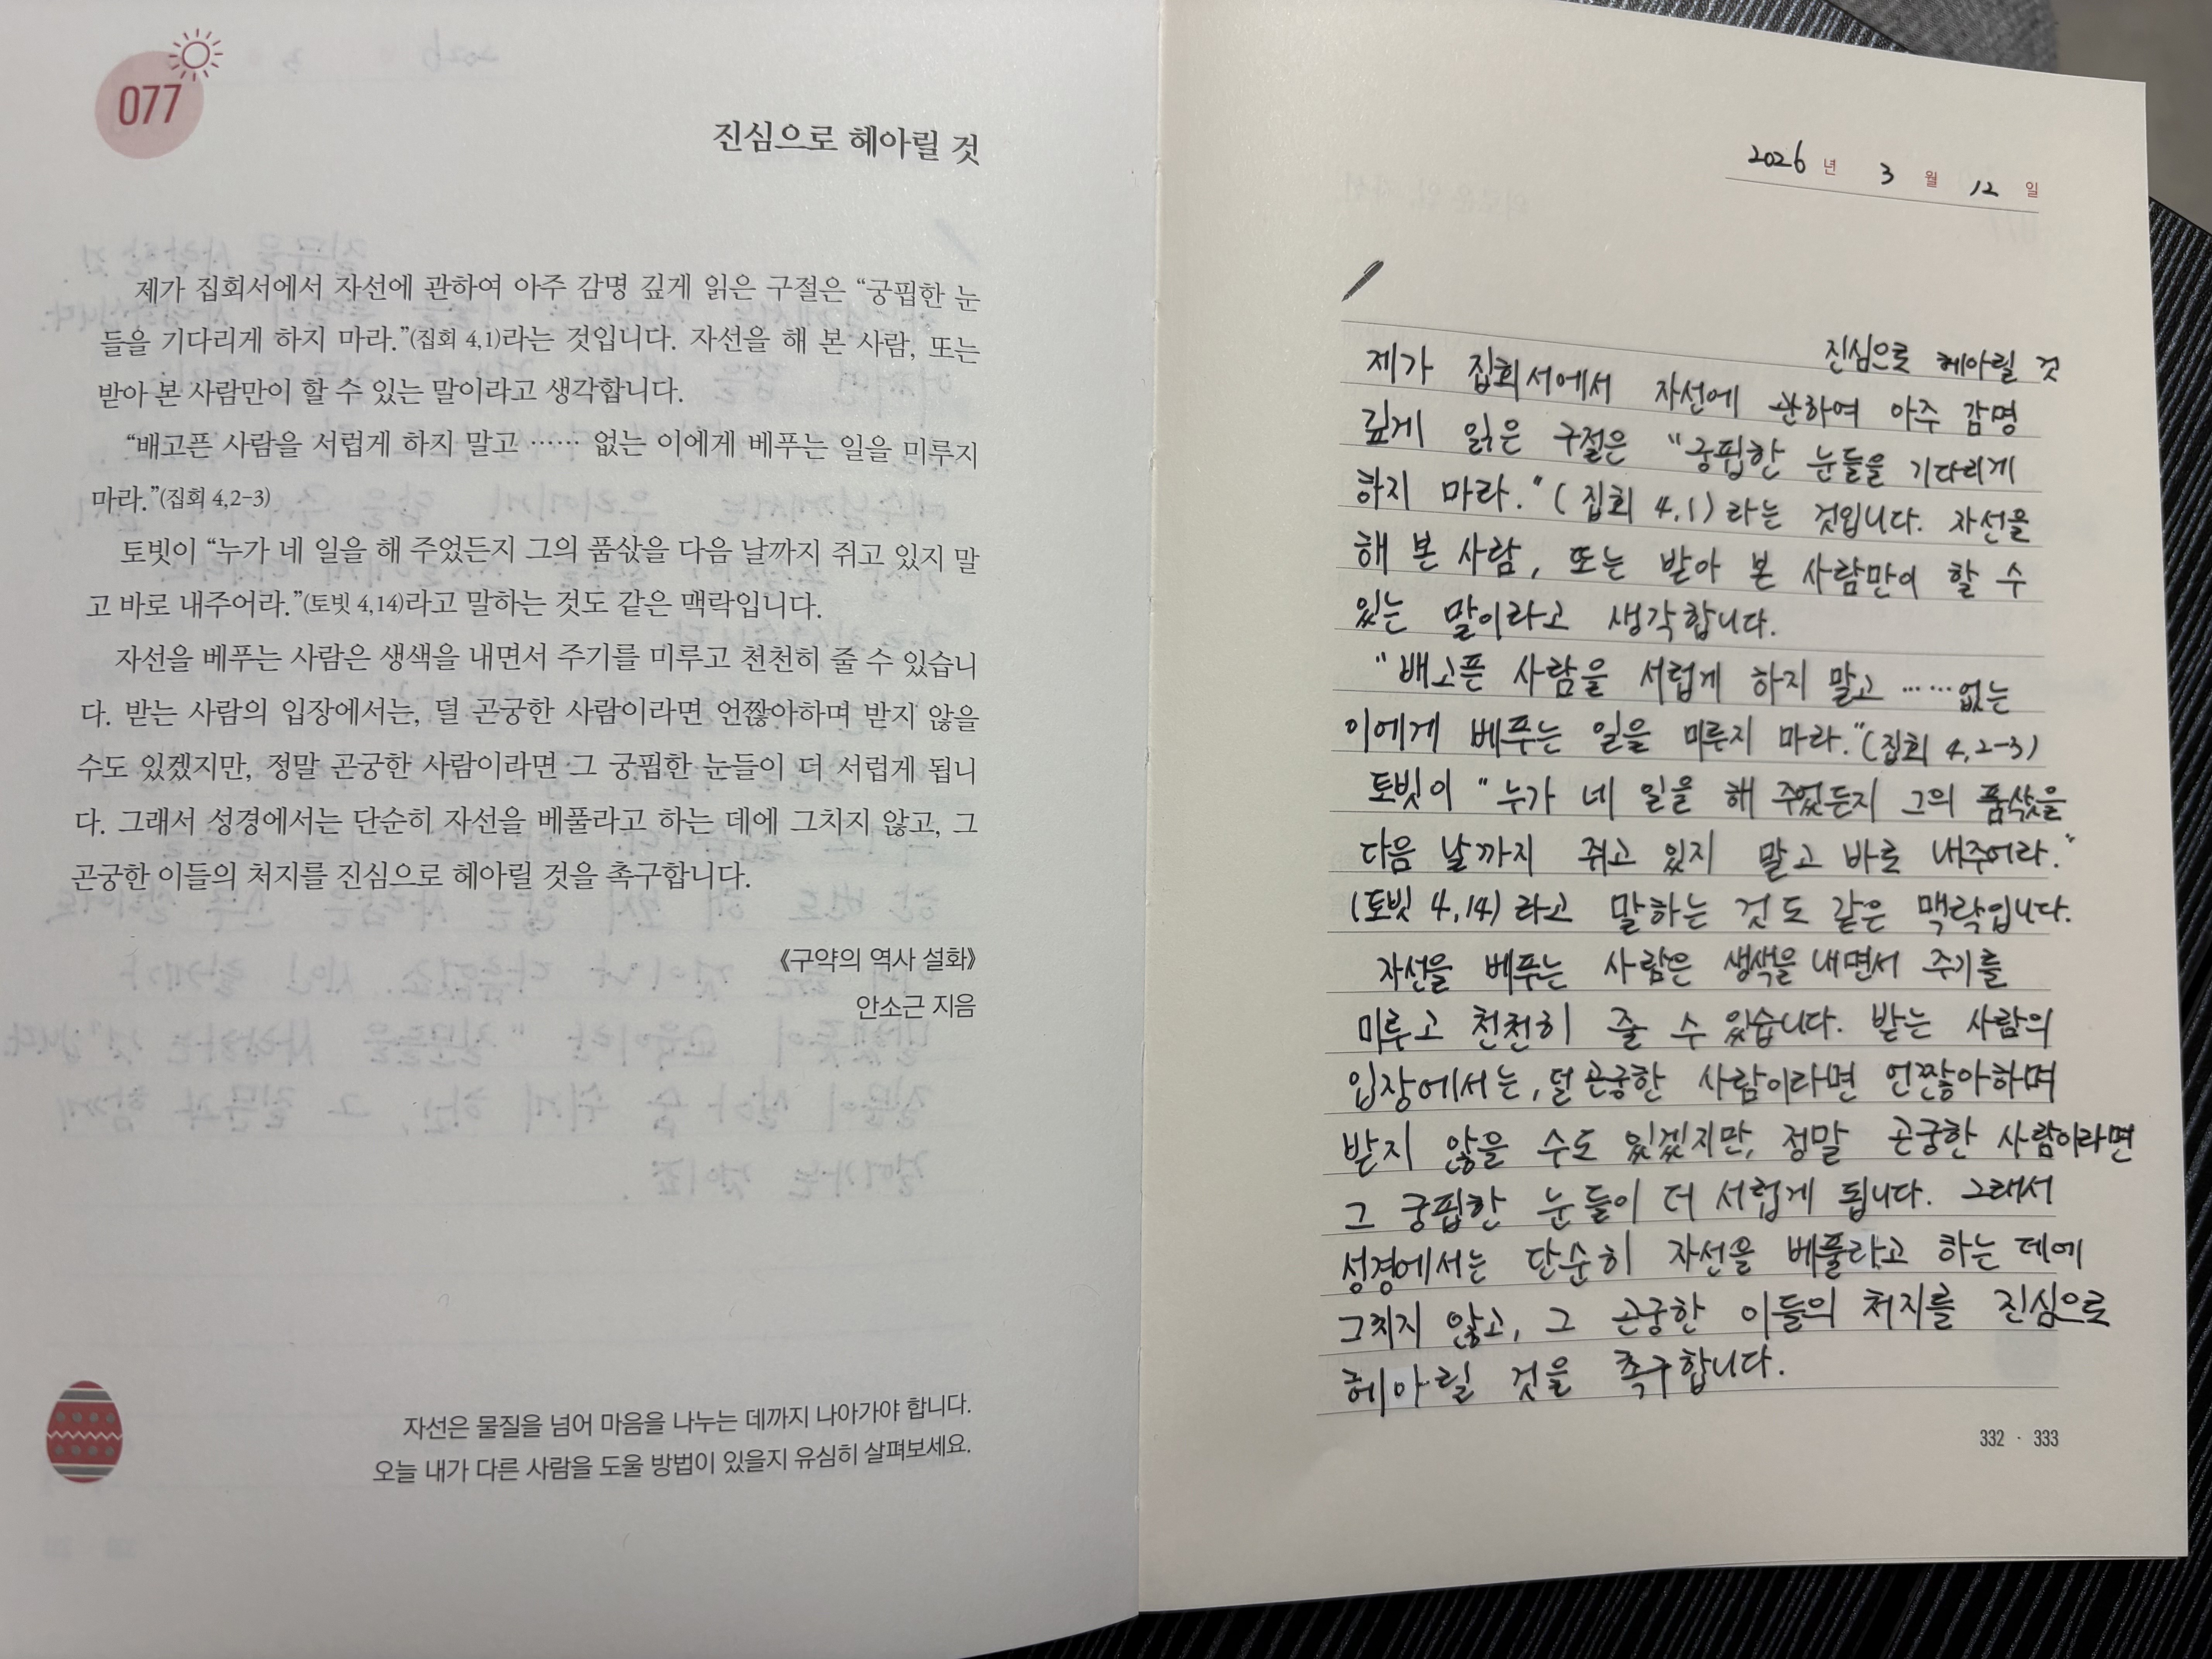 077
진심으로 헤아릴 것
제가 집회서에서 자선에 관하여 아주 감명 깊게 읽은 구절은 “궁핍한 눈
들을 기다리게 하지 마라.”(집회 4,1)라는 것입니다. 자선을 해 본 사람, 또는
받아 본 사람만이 할 수 있는 말이라고 생각합니다.
“배고픈 사람을 서럽게 하지 말고 …… 없는 이에게 베푸는 일을 미루지
마라.”(집회 4,2-3)
토빗이 “누가 네 일을 해 주었든지 그의 품삯을 다음 날까지 쥐고 있지 말
고 바로 내주어라.”(토빗 4,14)라고 말하는 것도 같은 맥락입니다.
자선을 베푸는 사람은 생색을 내면서 주기를 미루고 천천히 줄 수 있습니
다. 받는 사람의 입장에서는, 덜 곤궁한 사람이라면 언짢아하며 받지 않을
수도 있겠지만, 정말 곤궁한 사람이라면 그 궁핍한 눈들이 더 서럽게 됩니
다. 그래서 성경에서는 단순히 자선을 베풀라고 하는 데에 그치지 않고, 그
곤궁한 이들의 처지를 진심으로 헤아릴 것을 촉구합니다.
《구약의 역사 설화》
안소근 지음
자선은 물질을 넘어 마음을 나누는 데까지 나아가야 합니다.
오늘 내가 다른 사람을 도울 방법이 있을지 유심히 살펴보세요.
2026 년 3 월 12 일
진심으로 헤아릴 것
제가 집회서에서 자선에 관하여 아주 감명
깊게 읽은 구절은 “궁핍한 눈들을 기다리게
하지 마라.”(집회 4,1)라는 것입니다. 자선을
해 본 사람, 또는 받아 본 사람만이 할 수
있는 말이라고 생각합니다.
“배고픈 사람을 서럽게 하지 말고 …… 없는
이에게 베푸는 일을 미루지 마라.”(집회 4,2-3)
토빗이 “누가 네 일을 해 주었든지 그의 품삯을
다음 날까지 쥐고 있지 말고 바로 내주어라.”
(토빗 4,14)라고 말하는 것도 같은 맥락입니다.
자선을 베푸는 사람은 생색을 내면서 주기를
미루고 천천히 줄 수 있습니다. 받는 사람의
입장에서는, 덜 곤궁한 사람이라면 언짢아하며
받지 않을 수도 있겠지만, 정말 곤궁한 사람이라면
그 궁핍한 눈들이 더 서럽게 됩니다. 그래서
성경에서는 단순히 자선을 베풀라고 하는 데에
그치지 않고, 그 곤궁한 이들의 처지를 진심으로
헤아릴 것을 촉구합니다.
332 · 333